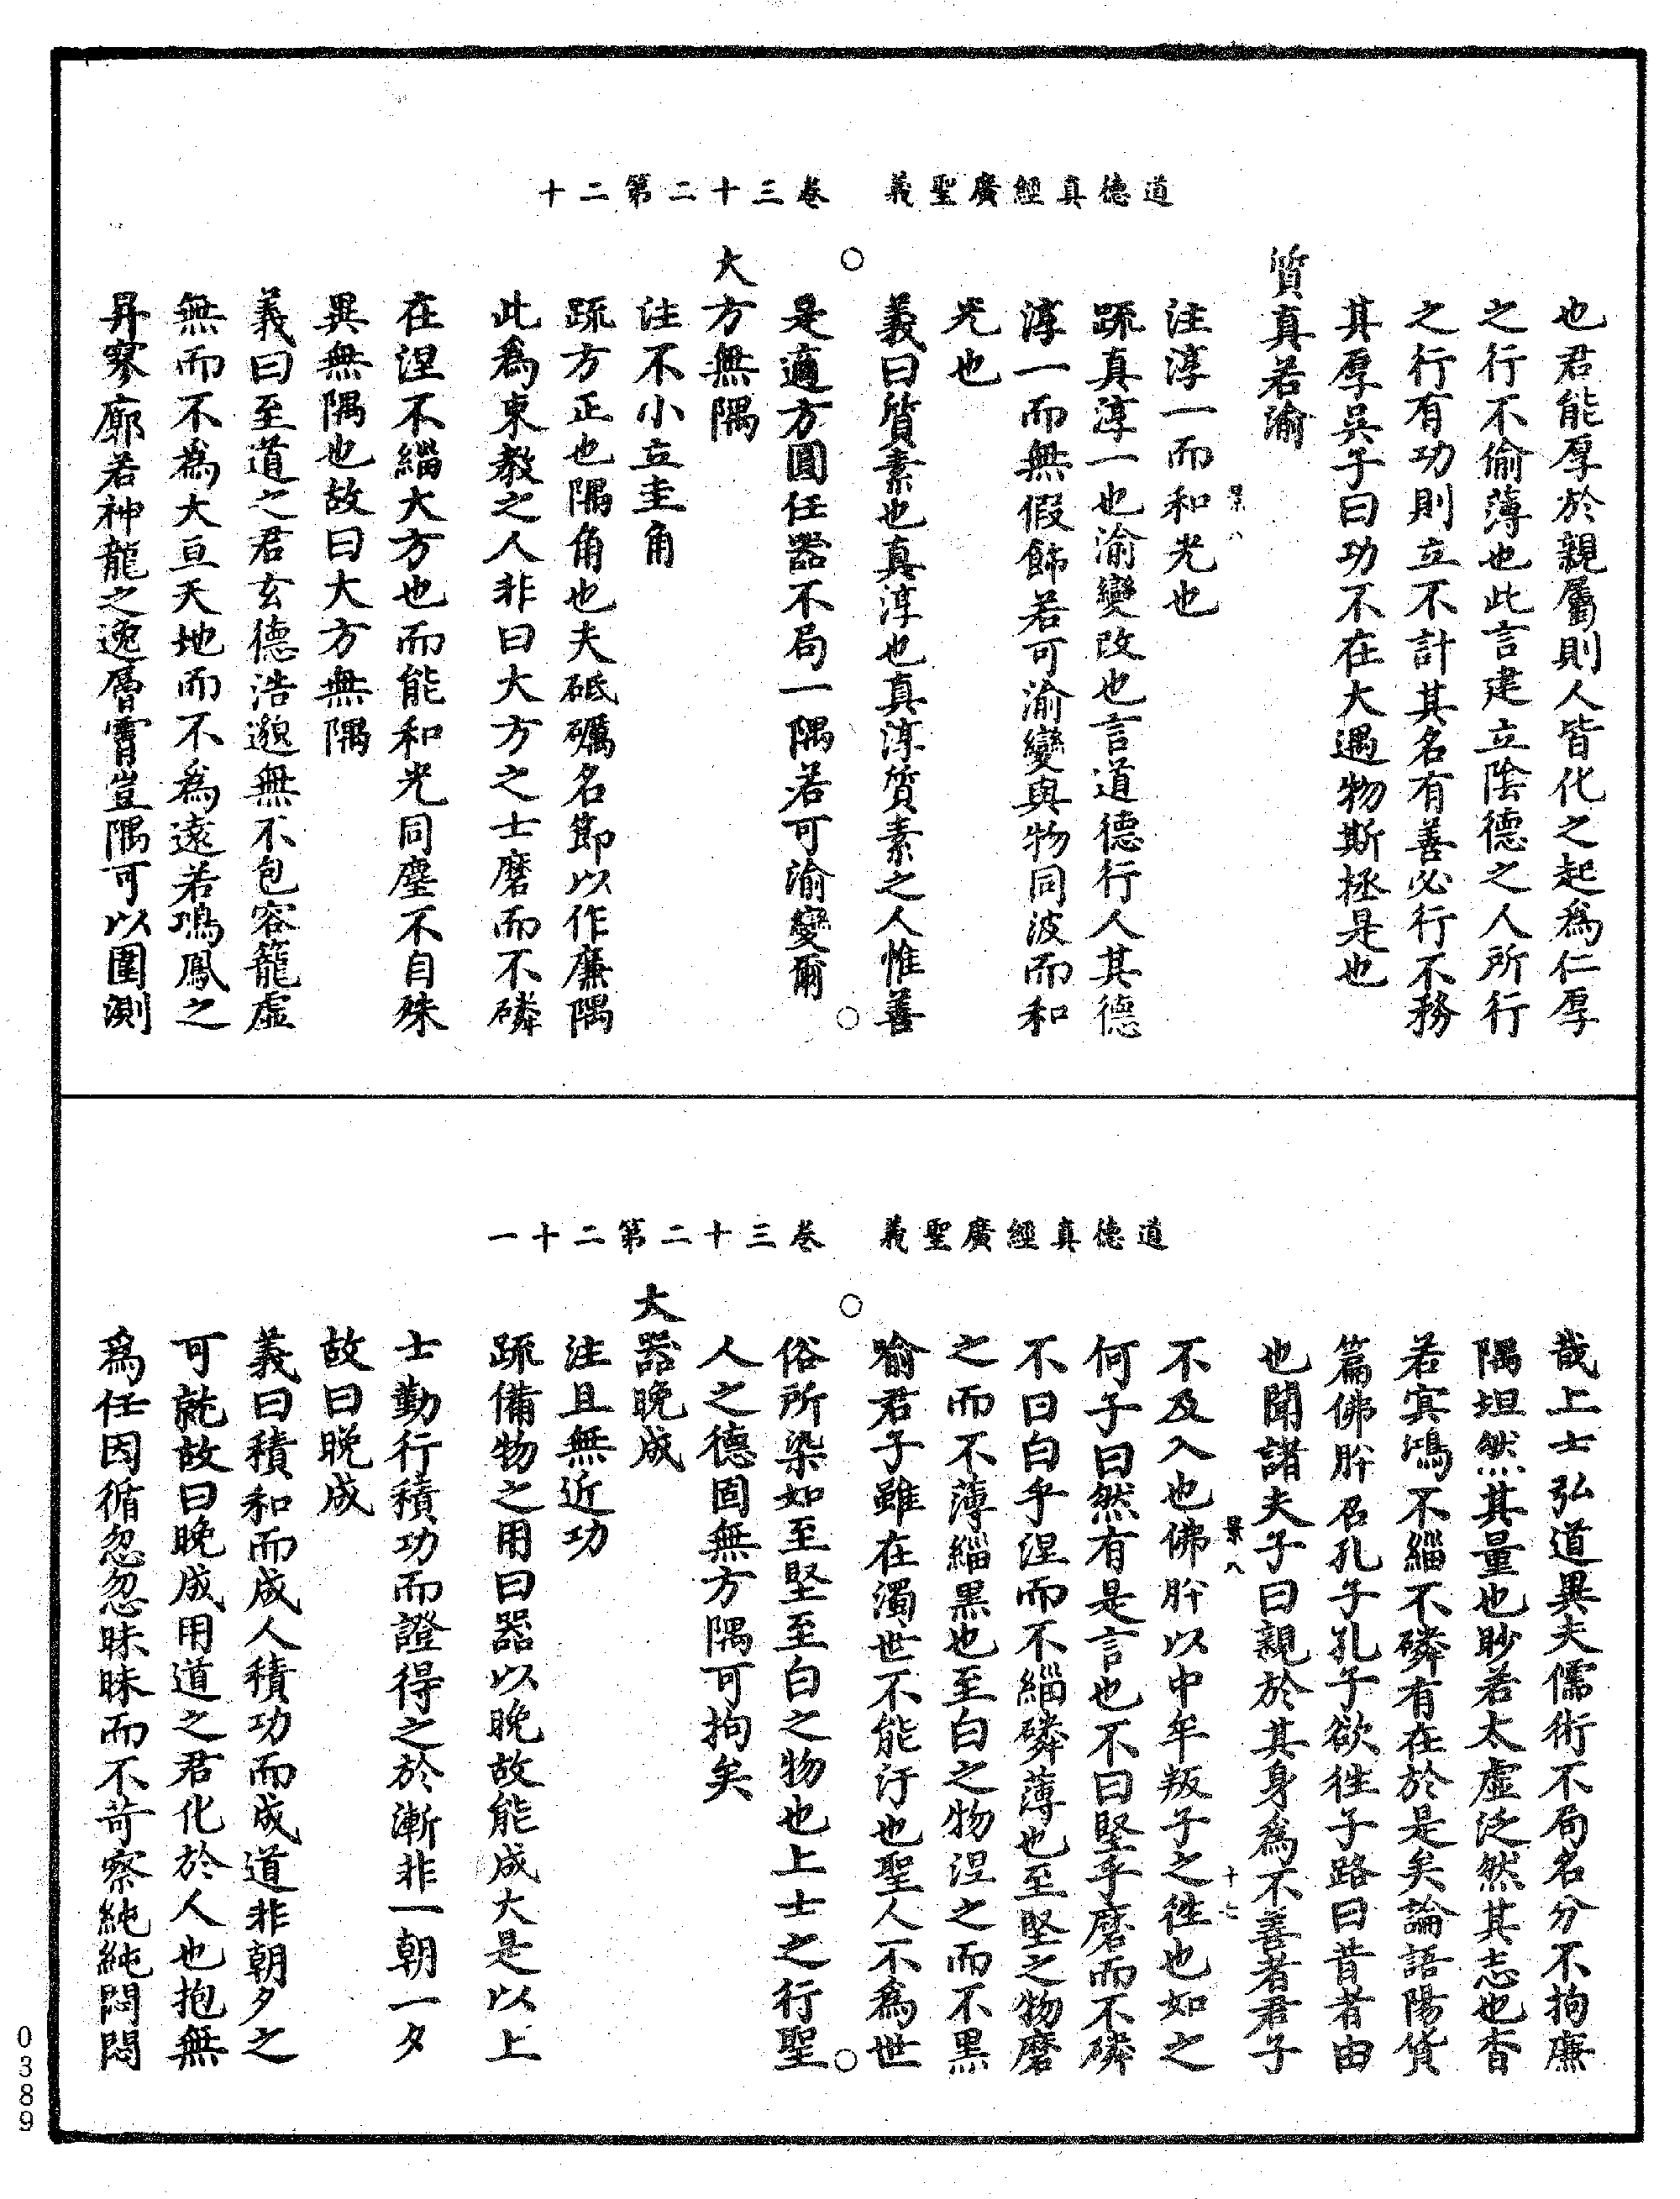 道德真經廣聖義　卷三十二第二十
也君能厚於親屬則人皆化之起爲仁厚
之行不偷薄也此言建立陰德之人所行
之行有功則立不計其名有善必行不務
其厚吳子曰功不在大遇物斯拯是也
質真若渝
注淳一而和光也
疏真淳一也渝變改也言道德行人其德
淳一而無假飾若可渝變與物同波而和
光也
義曰質素也真淳也真淳質素之人惟善
是適方圓任器不局一隅若可渝變爾
大方無隅
注不小立圭角
疏方正也隅角也夫砥礪名節以作廉隅
此爲東教之人非曰大方之士磨而不磷
在涅不緇大方也而能和光同塵不自殊
異無隅也故曰大方無隅
義曰至道之君玄德浩邈無不包容籠虛
無而不爲大亘天地而不爲遠若鴻鳳之
昇寥廓若神龍之逸層霄豈隅可以圍測
道德真經廣聖義　卷三十二第二十一
哉上士弘道異夫儒術不局名分不拘廉
隅坦然其量也眇若太虛泛然其志也杳
若冥鴻不緇不磷有在於是矣論語陽貨
篇佛肸召孔子孔子欲徃子路曰昔者由
也聞諸夫子曰親於其身爲不善者君子
不及入也佛肸以中牟叛子之徃也如之
何子曰然有是言也不曰堅乎磨而不磷
不曰白乎涅而不緇磷薄也至堅之物磨
之而不薄緇黑也至白之物涅之而不黑
喻君子雖在濁世不能汙也聖人不爲世
俗所染如至堅至白之物也上士之行聖
人之德固無方隅可拘矣
大器晚成
注且無近功
疏備物之用曰器以晚故能成大是以上
士勤行積功而證得之於漸非一朝一夕
故曰晚成
義曰積和而成人積功而成道非朝夕之
可就故曰晚成用道之君化於人也抱無
爲任因循忽忽昧昧而不苛察純純悶悶
0389